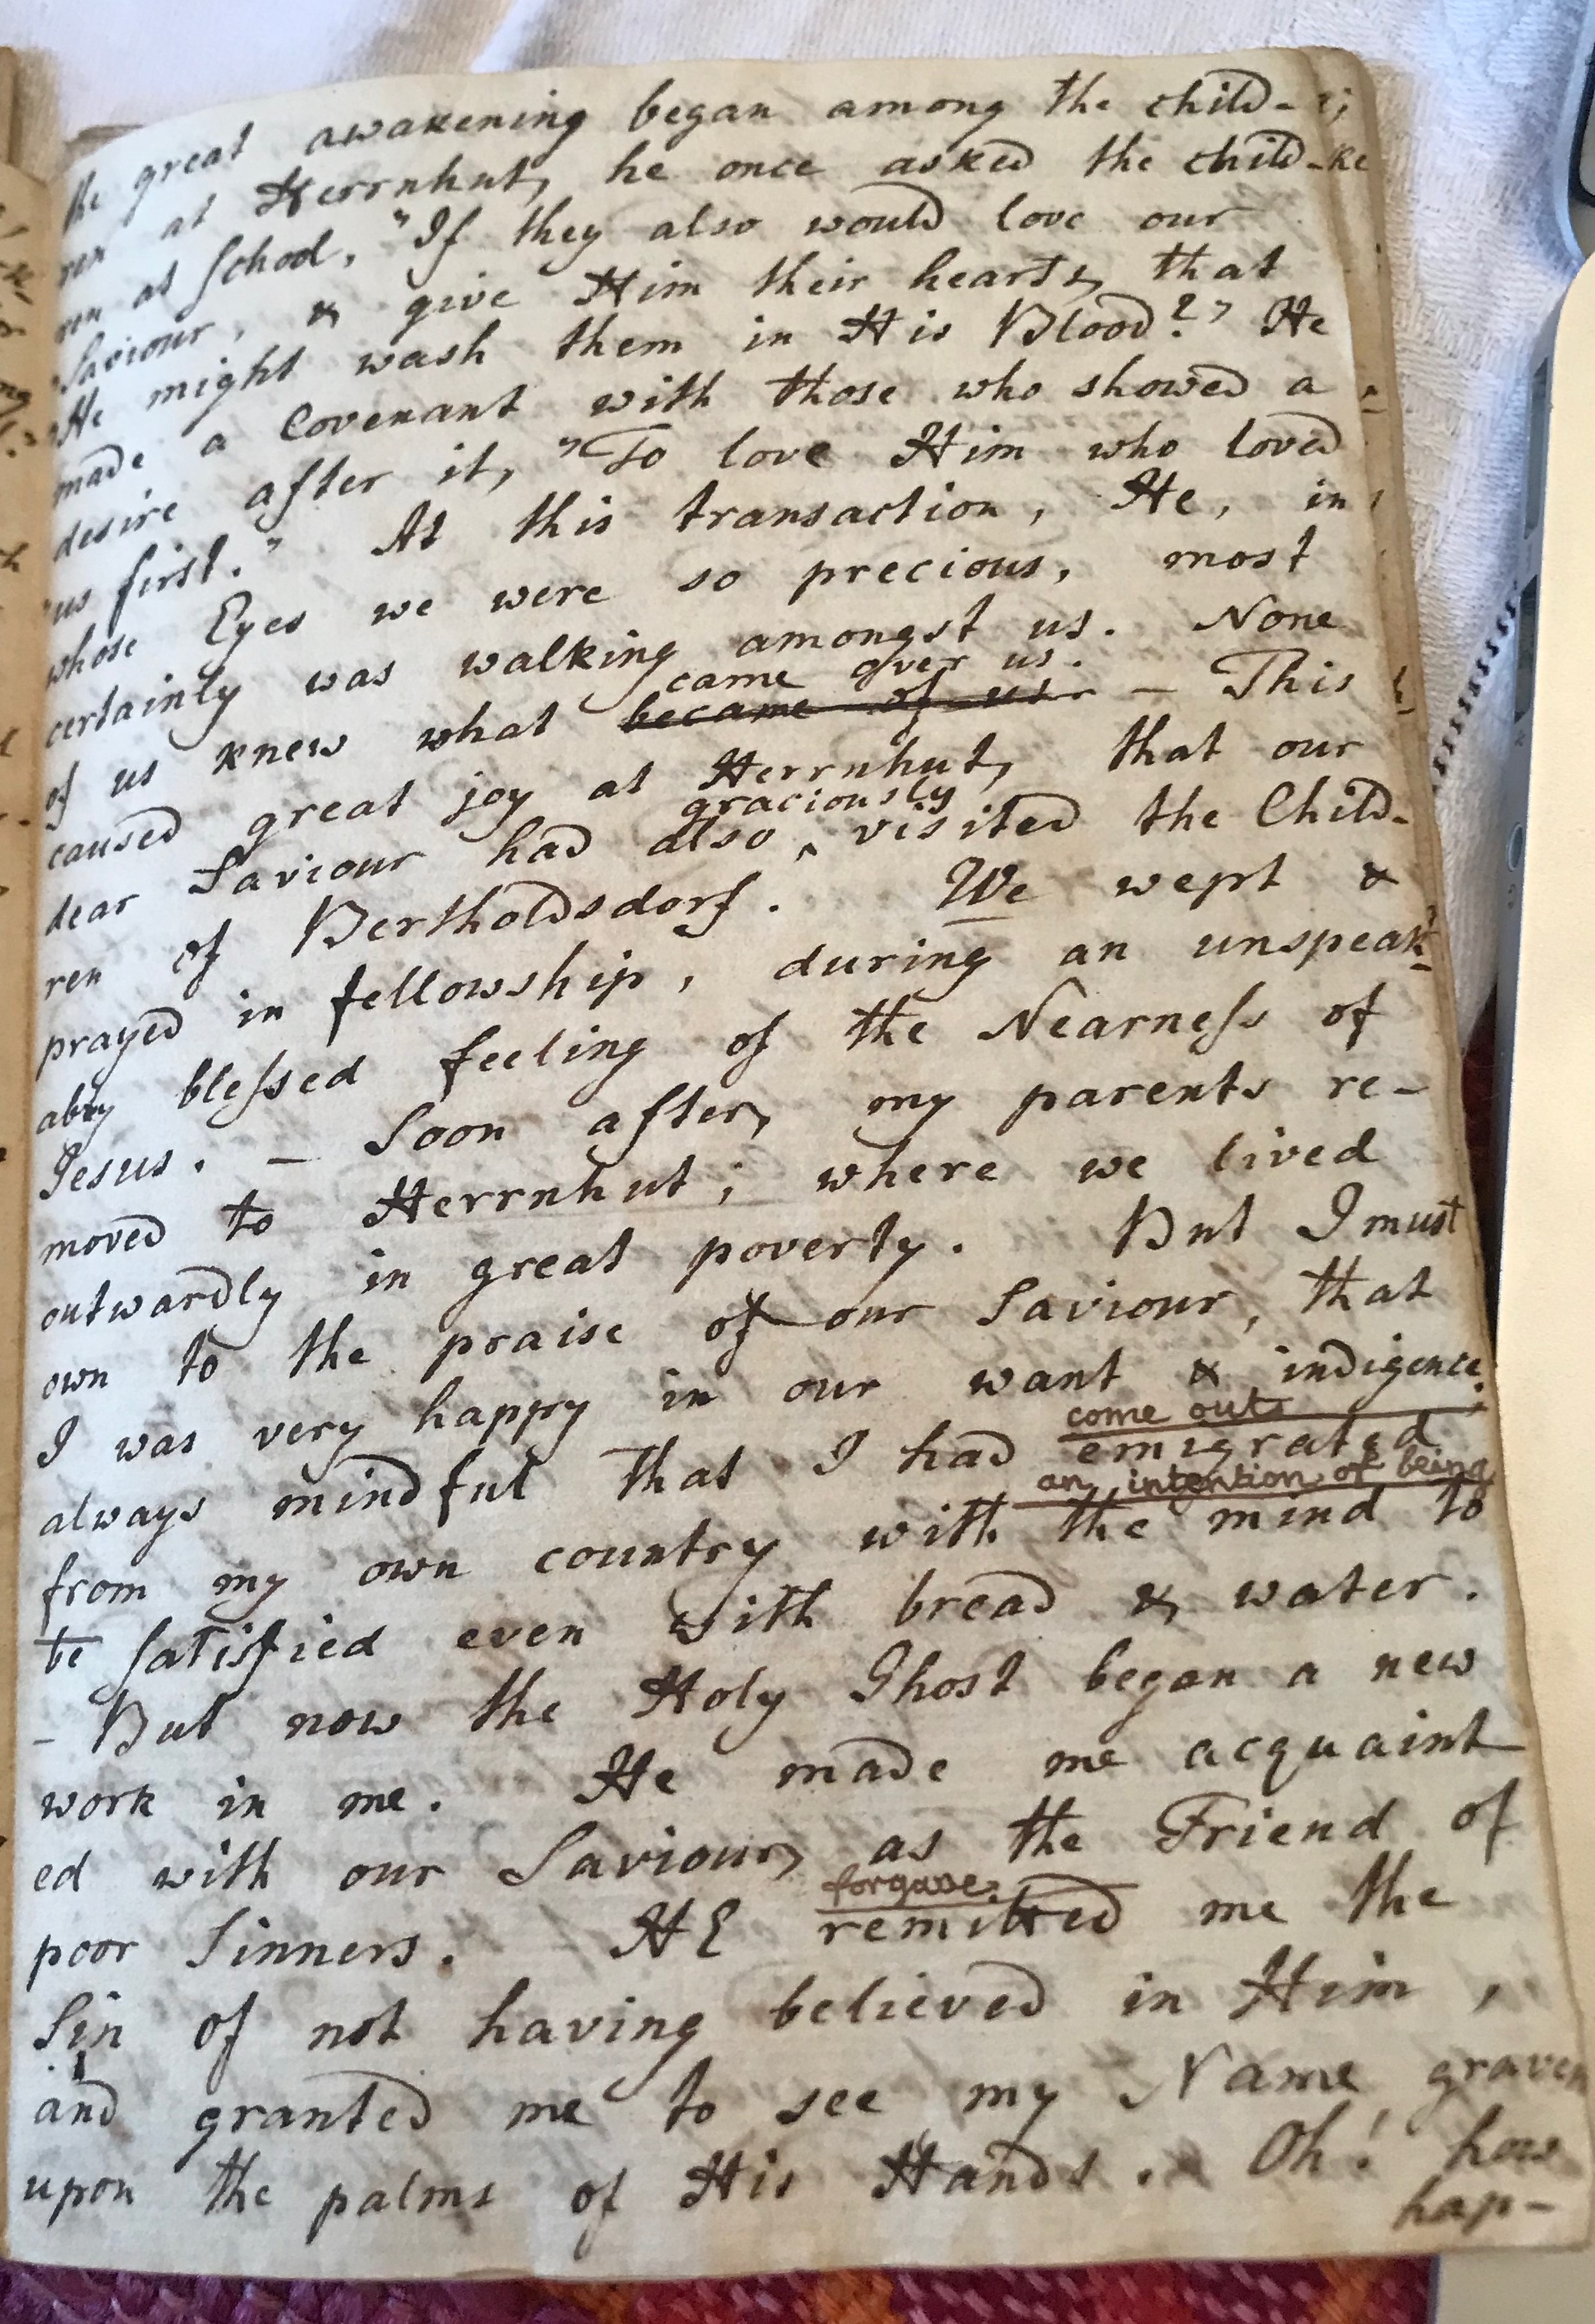 the great awakening began among the child-
ren at Herrnhut, he once asked the child-
ren at School, "If they also would love our
Saviour, & give Him their hearts, that
He might wash them in His Blood?" He
made a Covenant with those who showed a
desire after it, "To love Him who loved
us first." At this transaction, He, in
whose Eyes we were so precious, most
certainly was walking amongst us. None
came over us.
of us knew what became of us - This
caused great joy at Herrnhut, that our
graciously
dear Saviour had also ‸ visited the Child-
ren of Bertholdsdorf. We wept &
prayed in fellowship, during an unspeak-
ably blessed feeling of the Nearness of
Jesus. - Soon after, my parents re-
moved to Herrnhut; where we lived
outwardly in great poverty. But I must
own to the praise of our Saviour, that
I was very happy in our want & indigence;
come out
always mindful that I had emigrated
an intention of being
from my own country with the mind to
be satisfied even with bread & water.
- But now the Holy Ghost began a new
work in me. He made me acquaint
ed with our Saviour, as the Friend of
forgave
poor Sinners. HE remitted me the
Sin of not having believed in Him,
and granted me to see my Name graven
upon the palms of His Hands. Oh! how
hap-